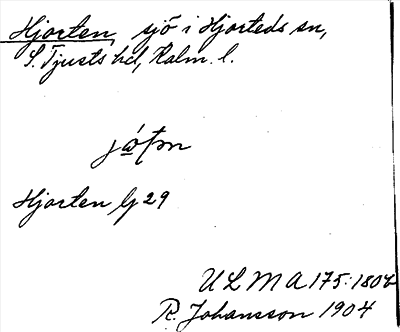 Hjorten, sjö i Hjorteds sn,
S. Tjusts hd, Kalm. l.
Hjorten G 29
ULMA 175:1807
R. Johansson 1904